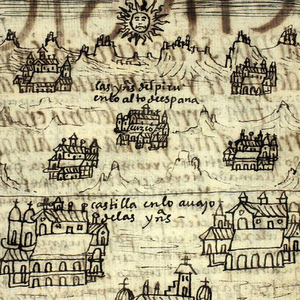 las yns del piru
en lo alto de españa
cuzco
castilla en lo auajo
de las yns